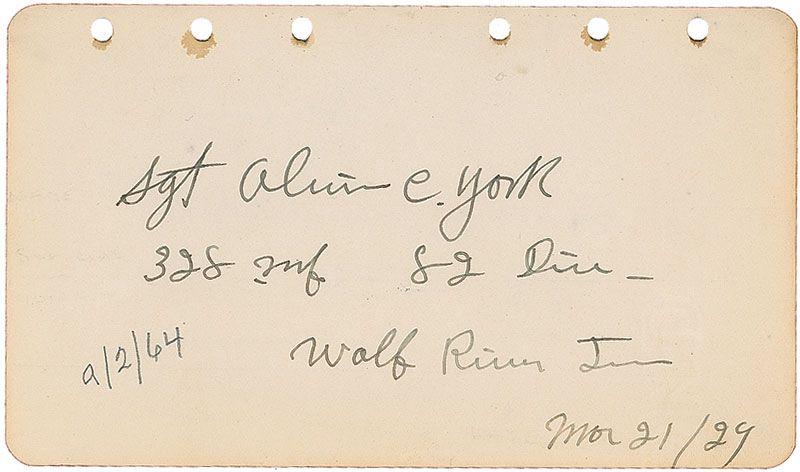 Sgt Alvin C. York
328 Inf 82 Div -
Wolf River Tenn
9/2/64
Mar 21/29